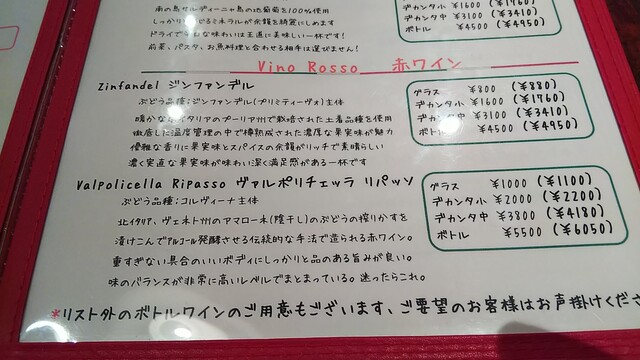 南の島サルディーニャ島の地葡萄を100%使用
しっかり
ミネラルが余韻を綺麗にしめます
ドライで
味わいは王道に美味しい一杯です!
前菜、パスタ、お魚料理と合わせる相手は選びません!
¥1600 (¥1760)
デカンタ中 ¥3100 (¥3410)
ボトル ¥4500 (¥4950)
Vino Rosso 赤ワイン
Zinfandel ジンファンデル
ぶどう品種:ジンファンデル(プリミティーヴォ)主体
暖かな
イタリアのプーリア州で栽培された土着品種を使用
徹底した温度管理の中で樽熟成された濃厚な果実味が魅力
優雅な香りに果実味とスパイスの余韻がリッチで素晴らしい
濃く実直な果実味が味わい深く満足感がある一杯です
グラス ¥800 (¥880)
デカンタ小 ¥1600 (¥1760)
デカンタ中 ¥3100 (¥3410)
ボトル ¥4500 (¥4950)
Valpolicella Ripasso ヴァルポリチェッラ リパッソ
ぶどう品種:コルヴィーナ主体
北イタリア、ヴェネト州のアマローネ(陰干し)のぶどうの搾りかすを
漬けこんでアルコール発酵させる伝統的な手法で造られる赤ワイン。
重すぎない具合のいいボディにしっかりと品のある旨みが良い。
味のバランスが非常に高いレベルでまとまっている。迷ったらこれ。
グラス ¥1000 (¥1100)
デカンタ小 ¥2000 (¥2200)
デカンタ中 ¥3800 (¥4180)
ボトル ¥5500 (¥6050)
*リスト外のボトルワインのご用意もございます、ご要望のお客様はお声掛けくださ